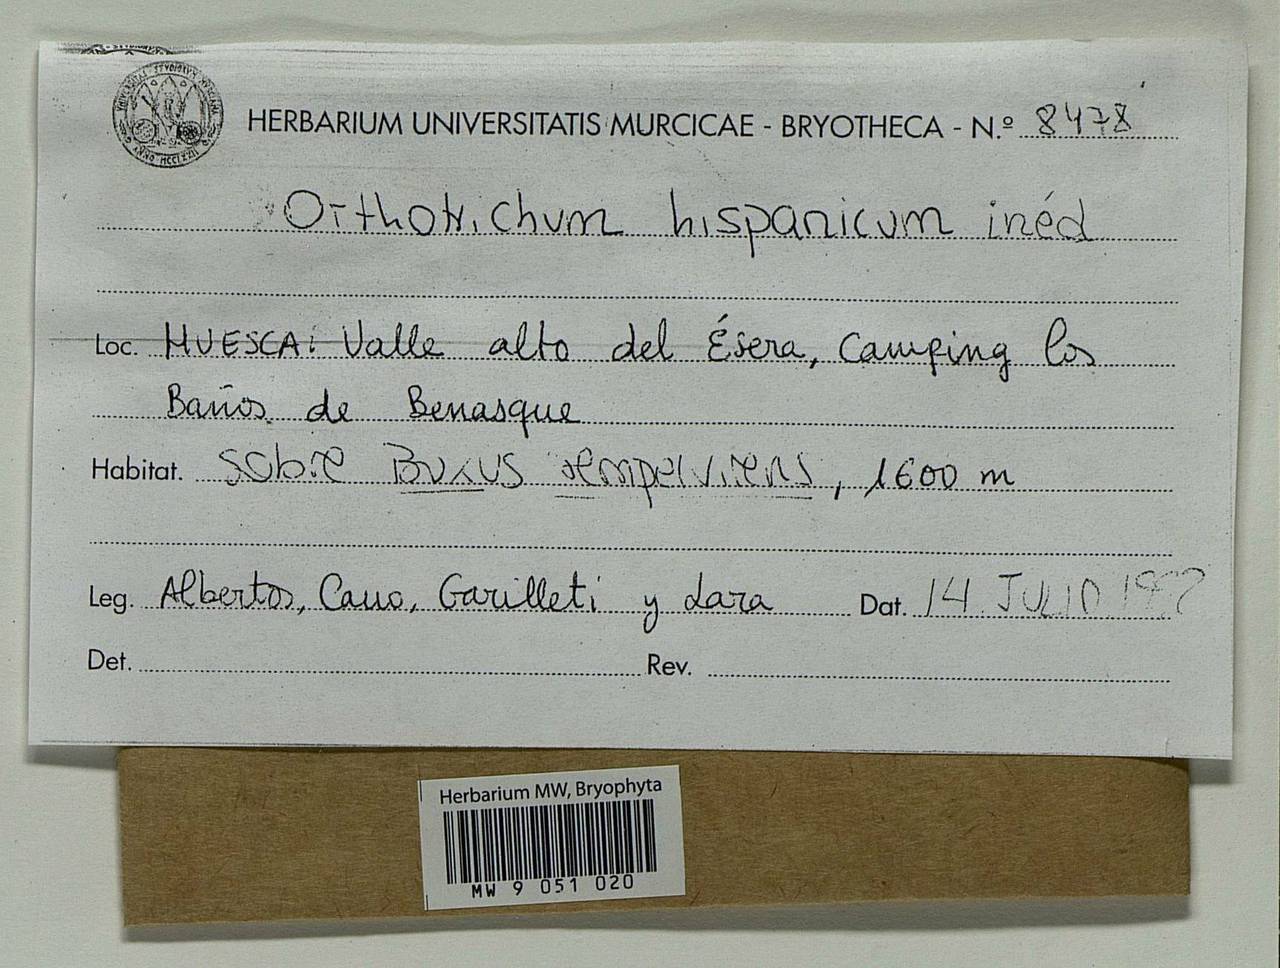 HERBARIUM UNIVERSITATIS MURCICAE - BRYOTHECA - N.º 8478
Orthotrichum hispanicum inéd
Loc. HUESCA: Valle alto del Ésera, Camping los
Baños de Benasque
Habitat. Sobre Buxus sempervirens, 1600 m
Leg. Albertos, Cano, Garilleti y Lara Dat. 14 JULIO
Det. Rev.
Herbarium MW, Bryophyta
MW 9 051 020